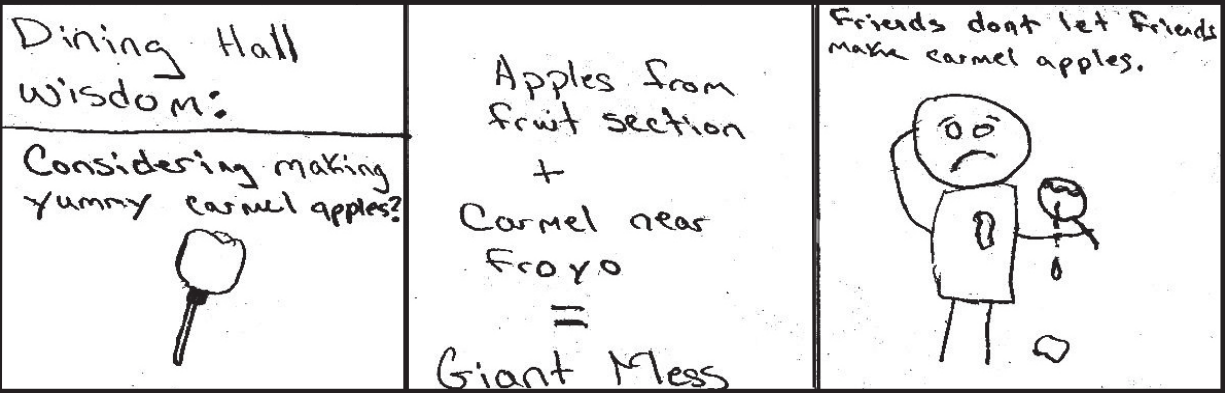 Dining Hall
wisdom:
Considering making
yummy carmel apples?
Apples from
fruit section
+
Carmel near
Froyo
=
Giant Mess
Friends dont let friends
make carmel apples.